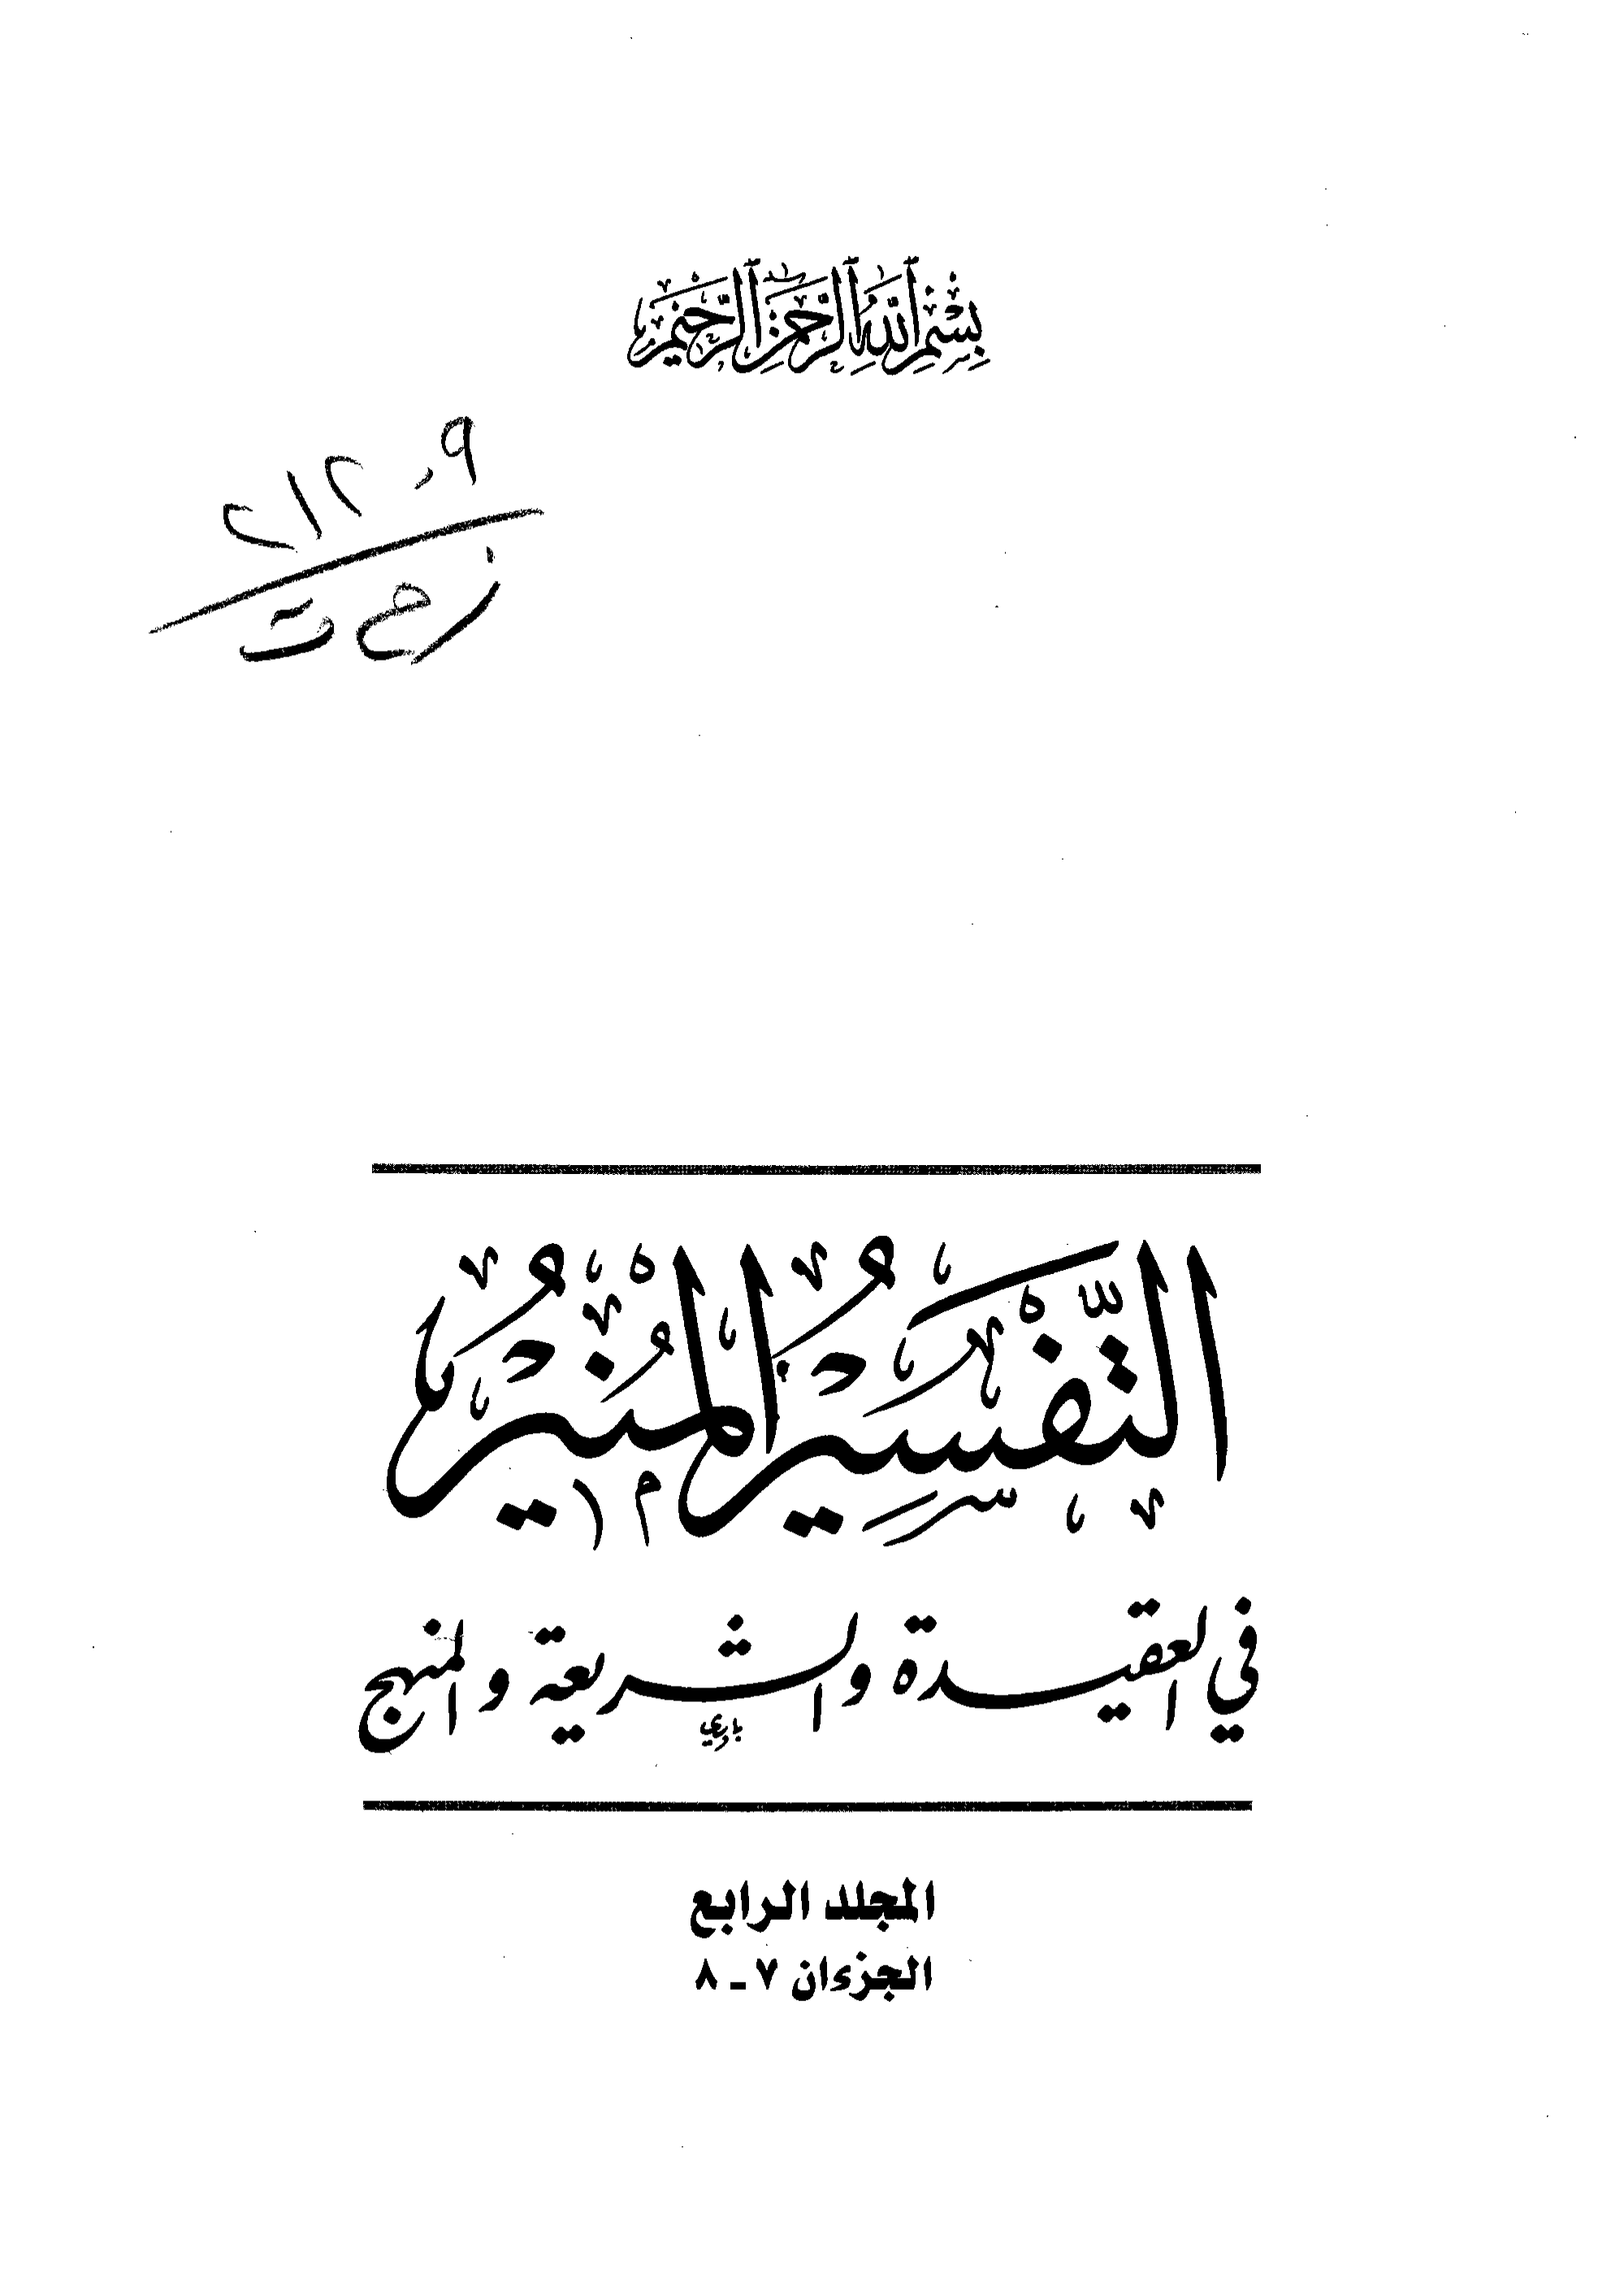 بِسْمِ ٱللَّهِ ٱلرَّحْمَٰنِ ٱلرَّحِيمِ
٢١٢.٩
ز ح ت
التَّفْسِيرُ الْمُنِيرُ
في العقيدة والشريعة والمنهج
المجلد الرابع
الجزءان ٧ - ٨